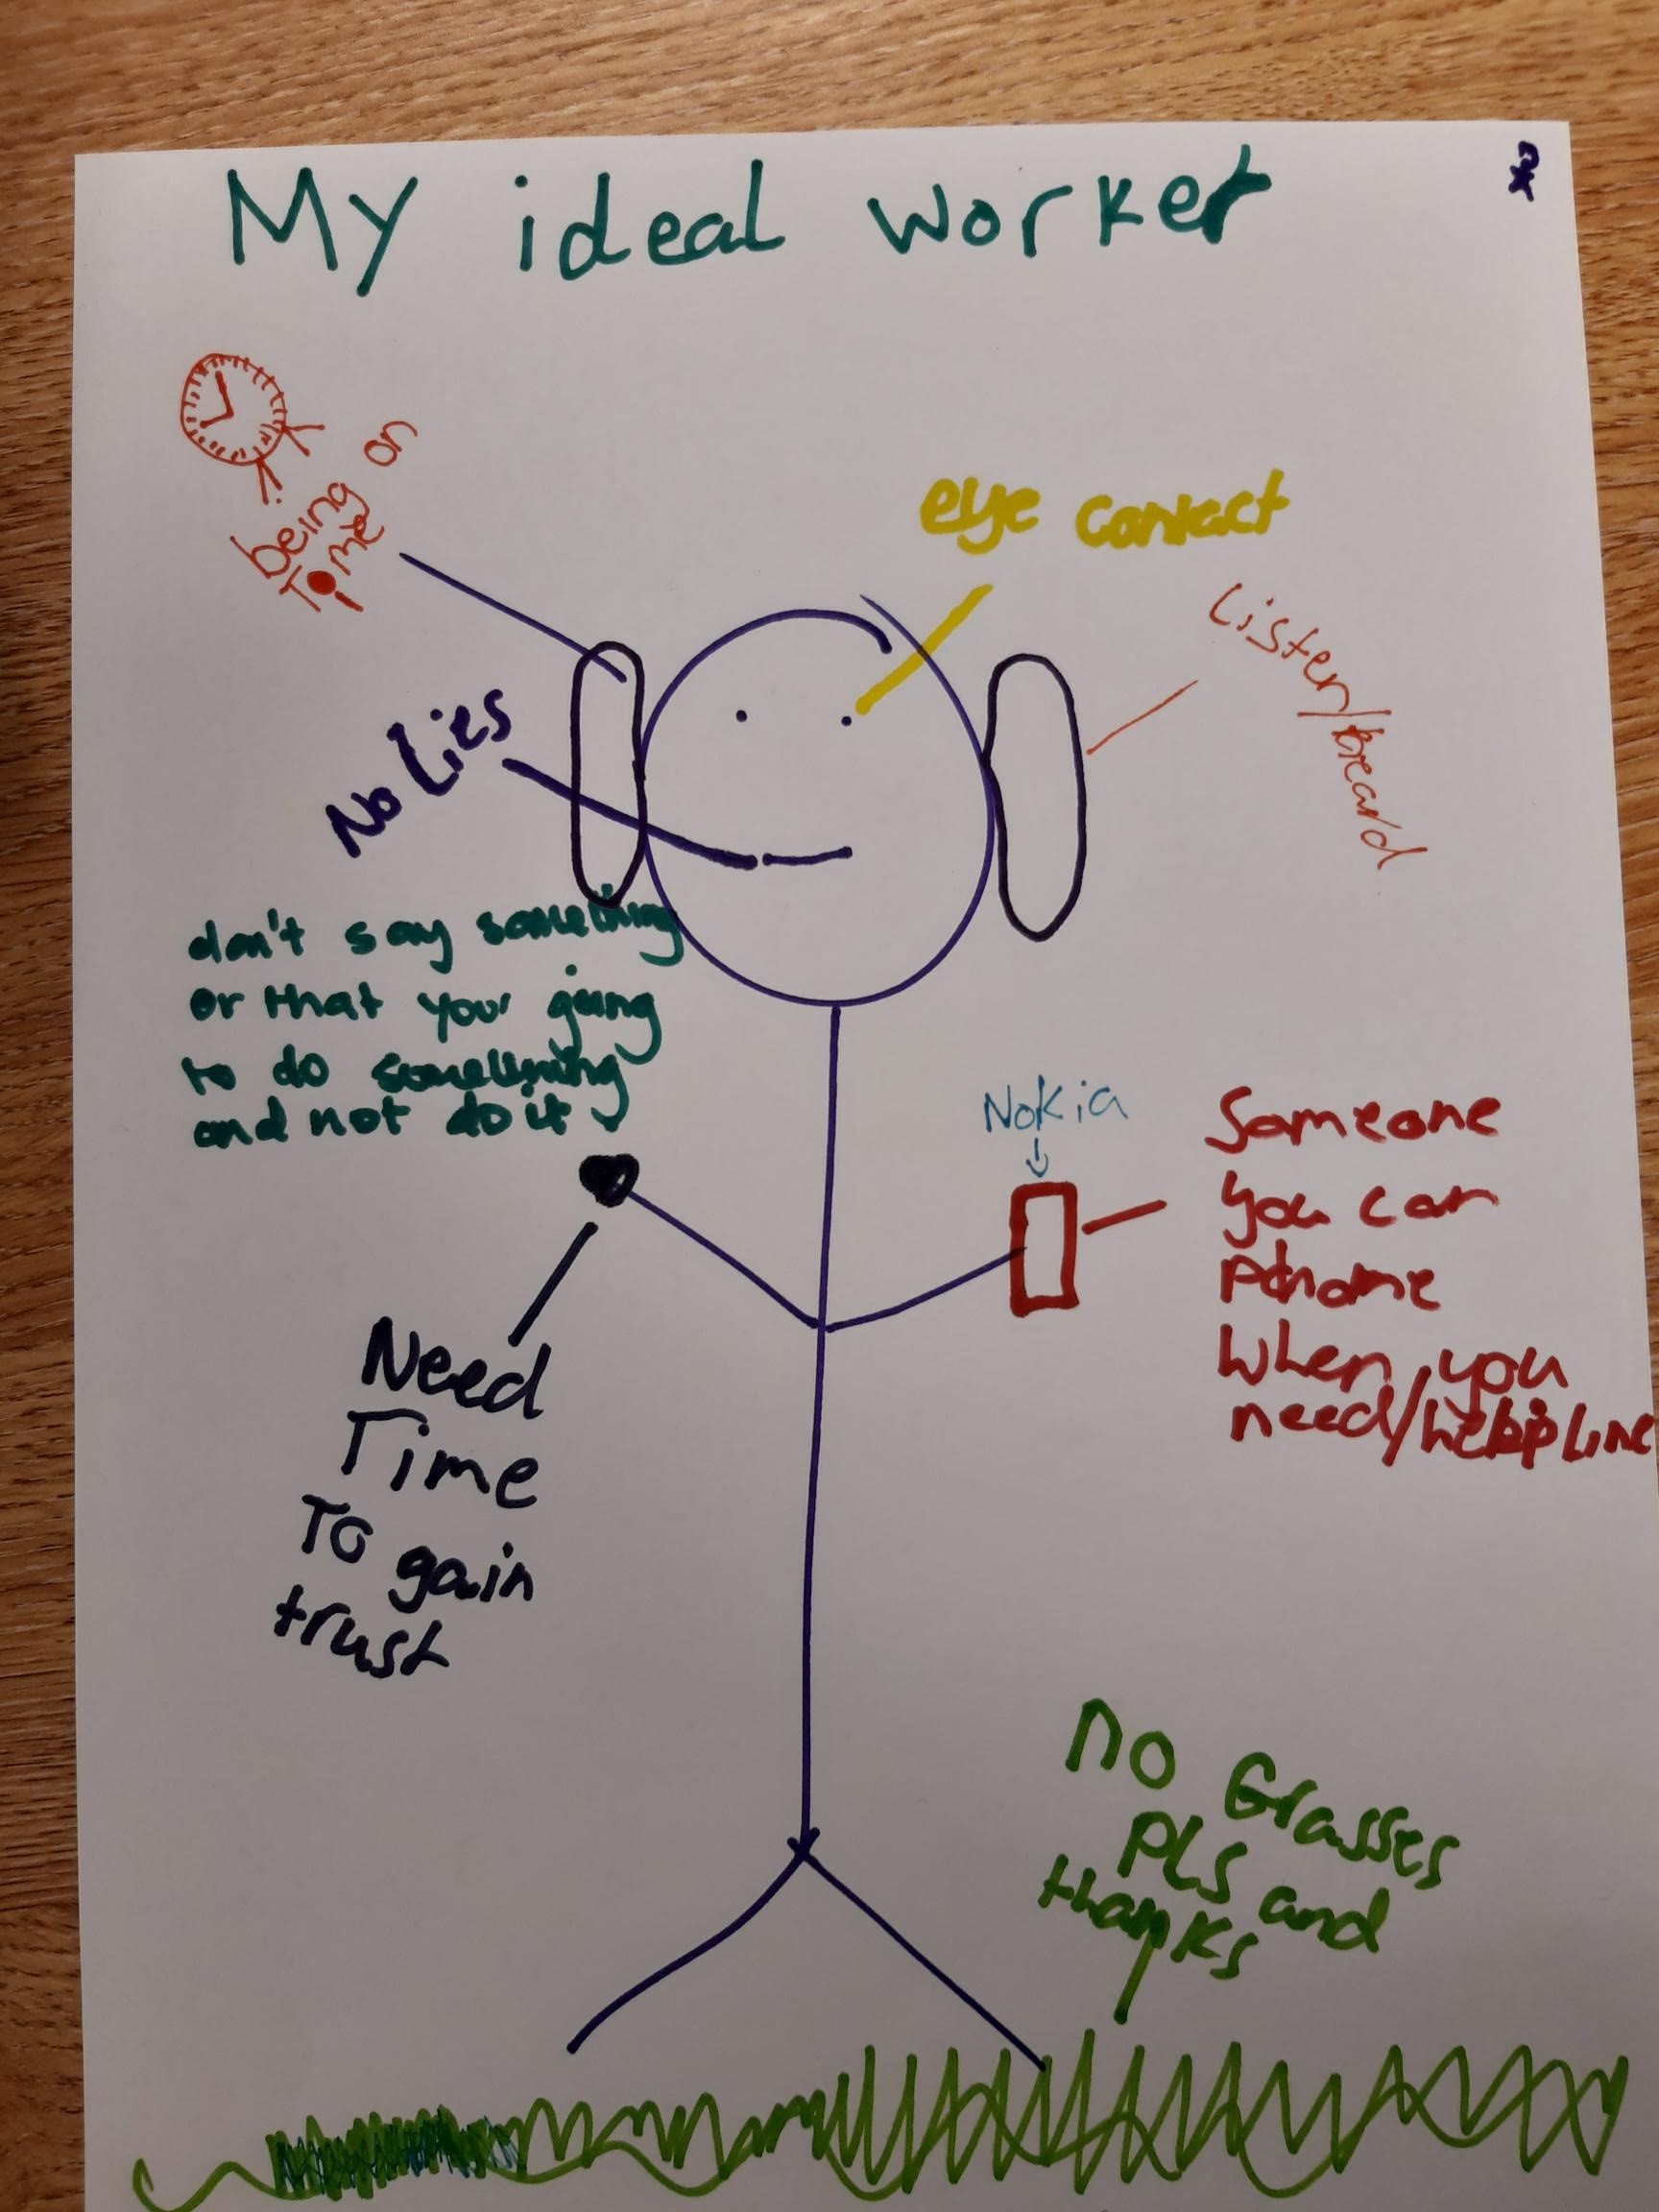 My ideal worker
being on
Time!
eye contact
Listen/heard
No Lies
don't say something
or that your going
to do something
and not do it
Nokia
Someone
you can
Phone
When you
need/helpline
Need
Time
To gain
trust
no Grasses
PLS and
thanks